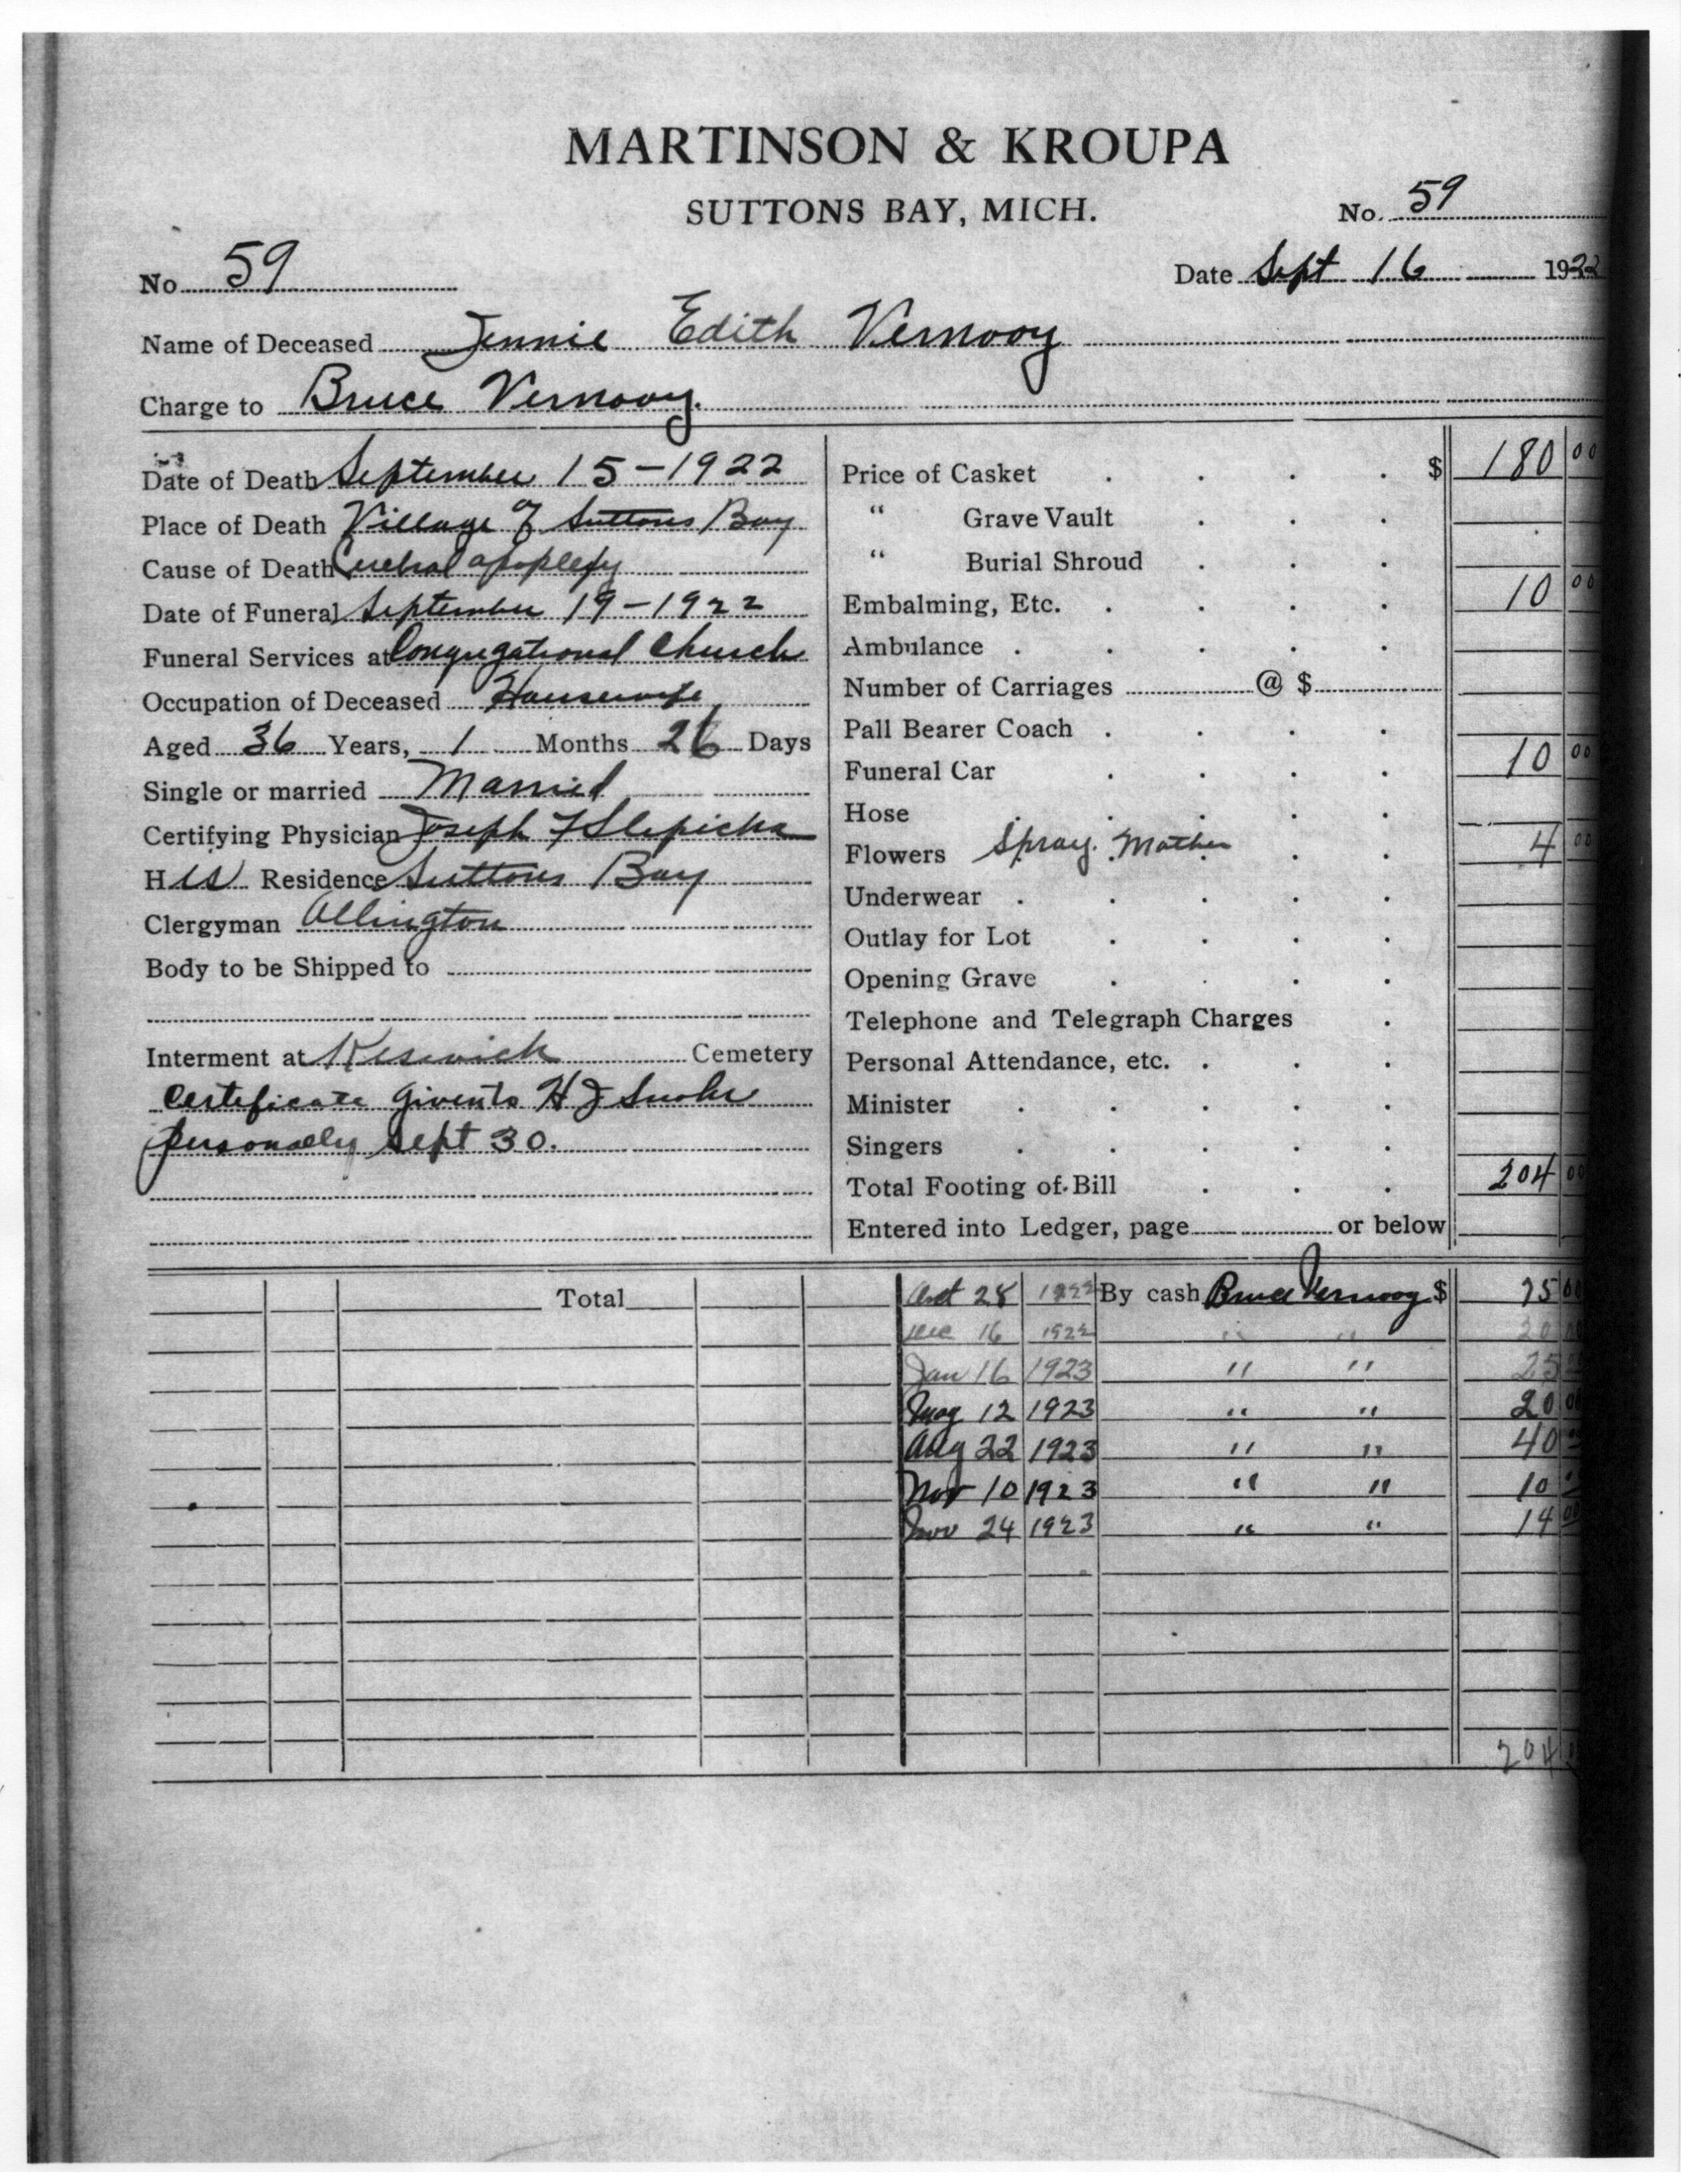 MARTINSON & KROUPA
SUTTONS BAY, MICH.
No. 59
No 59
Date Sept 16 1922
Name of Deceased Jennie Edith Vernooy
Charge to Bruce Vernooy.
Date of Death September 15-1922
Place of Death Village of Suttons Bay
Cause of Death Cerebral apoplexy
Date of Funeral September 19-1922
Funeral Services at Congregational Church
Occupation of Deceased Housewife
Aged 36 Years, 1 Months 26 Days
Single or married Married
Certifying Physician Joseph F Slepicka
His Residence Suttons Bay
Clergyman Allington
Body to be Shipped to
Interment at Keswick Cemetery
Certificate given to H J
personally Sept 30.
Price of Casket $ 180 00
" Grave Vault
" Burial Shroud
Embalming, Etc. 10 00
Ambulance
Number of Carriages @ $
Pall Bearer Coach
Funeral Car 10 00
Hose
Flowers Spray. Mother 4 00
Underwear
Outlay for Lot
Opening Grave
Telephone and Telegraph Charges
Personal Attendance, etc.
Minister
Singers
Total Footing of Bill 204 00
Entered into Ledger, page or below
Total
Oct 28 1922 By cash Bruce Vernooy $ 75 00
Dec 16 1922 " " 20 00
Jan 16 1923 " " 25
May 12 1923 " " 20 00
Aug 22 1923 " " 40
Nov 10 1923 " " 10
Nov 24 1923 " " 14 00
204